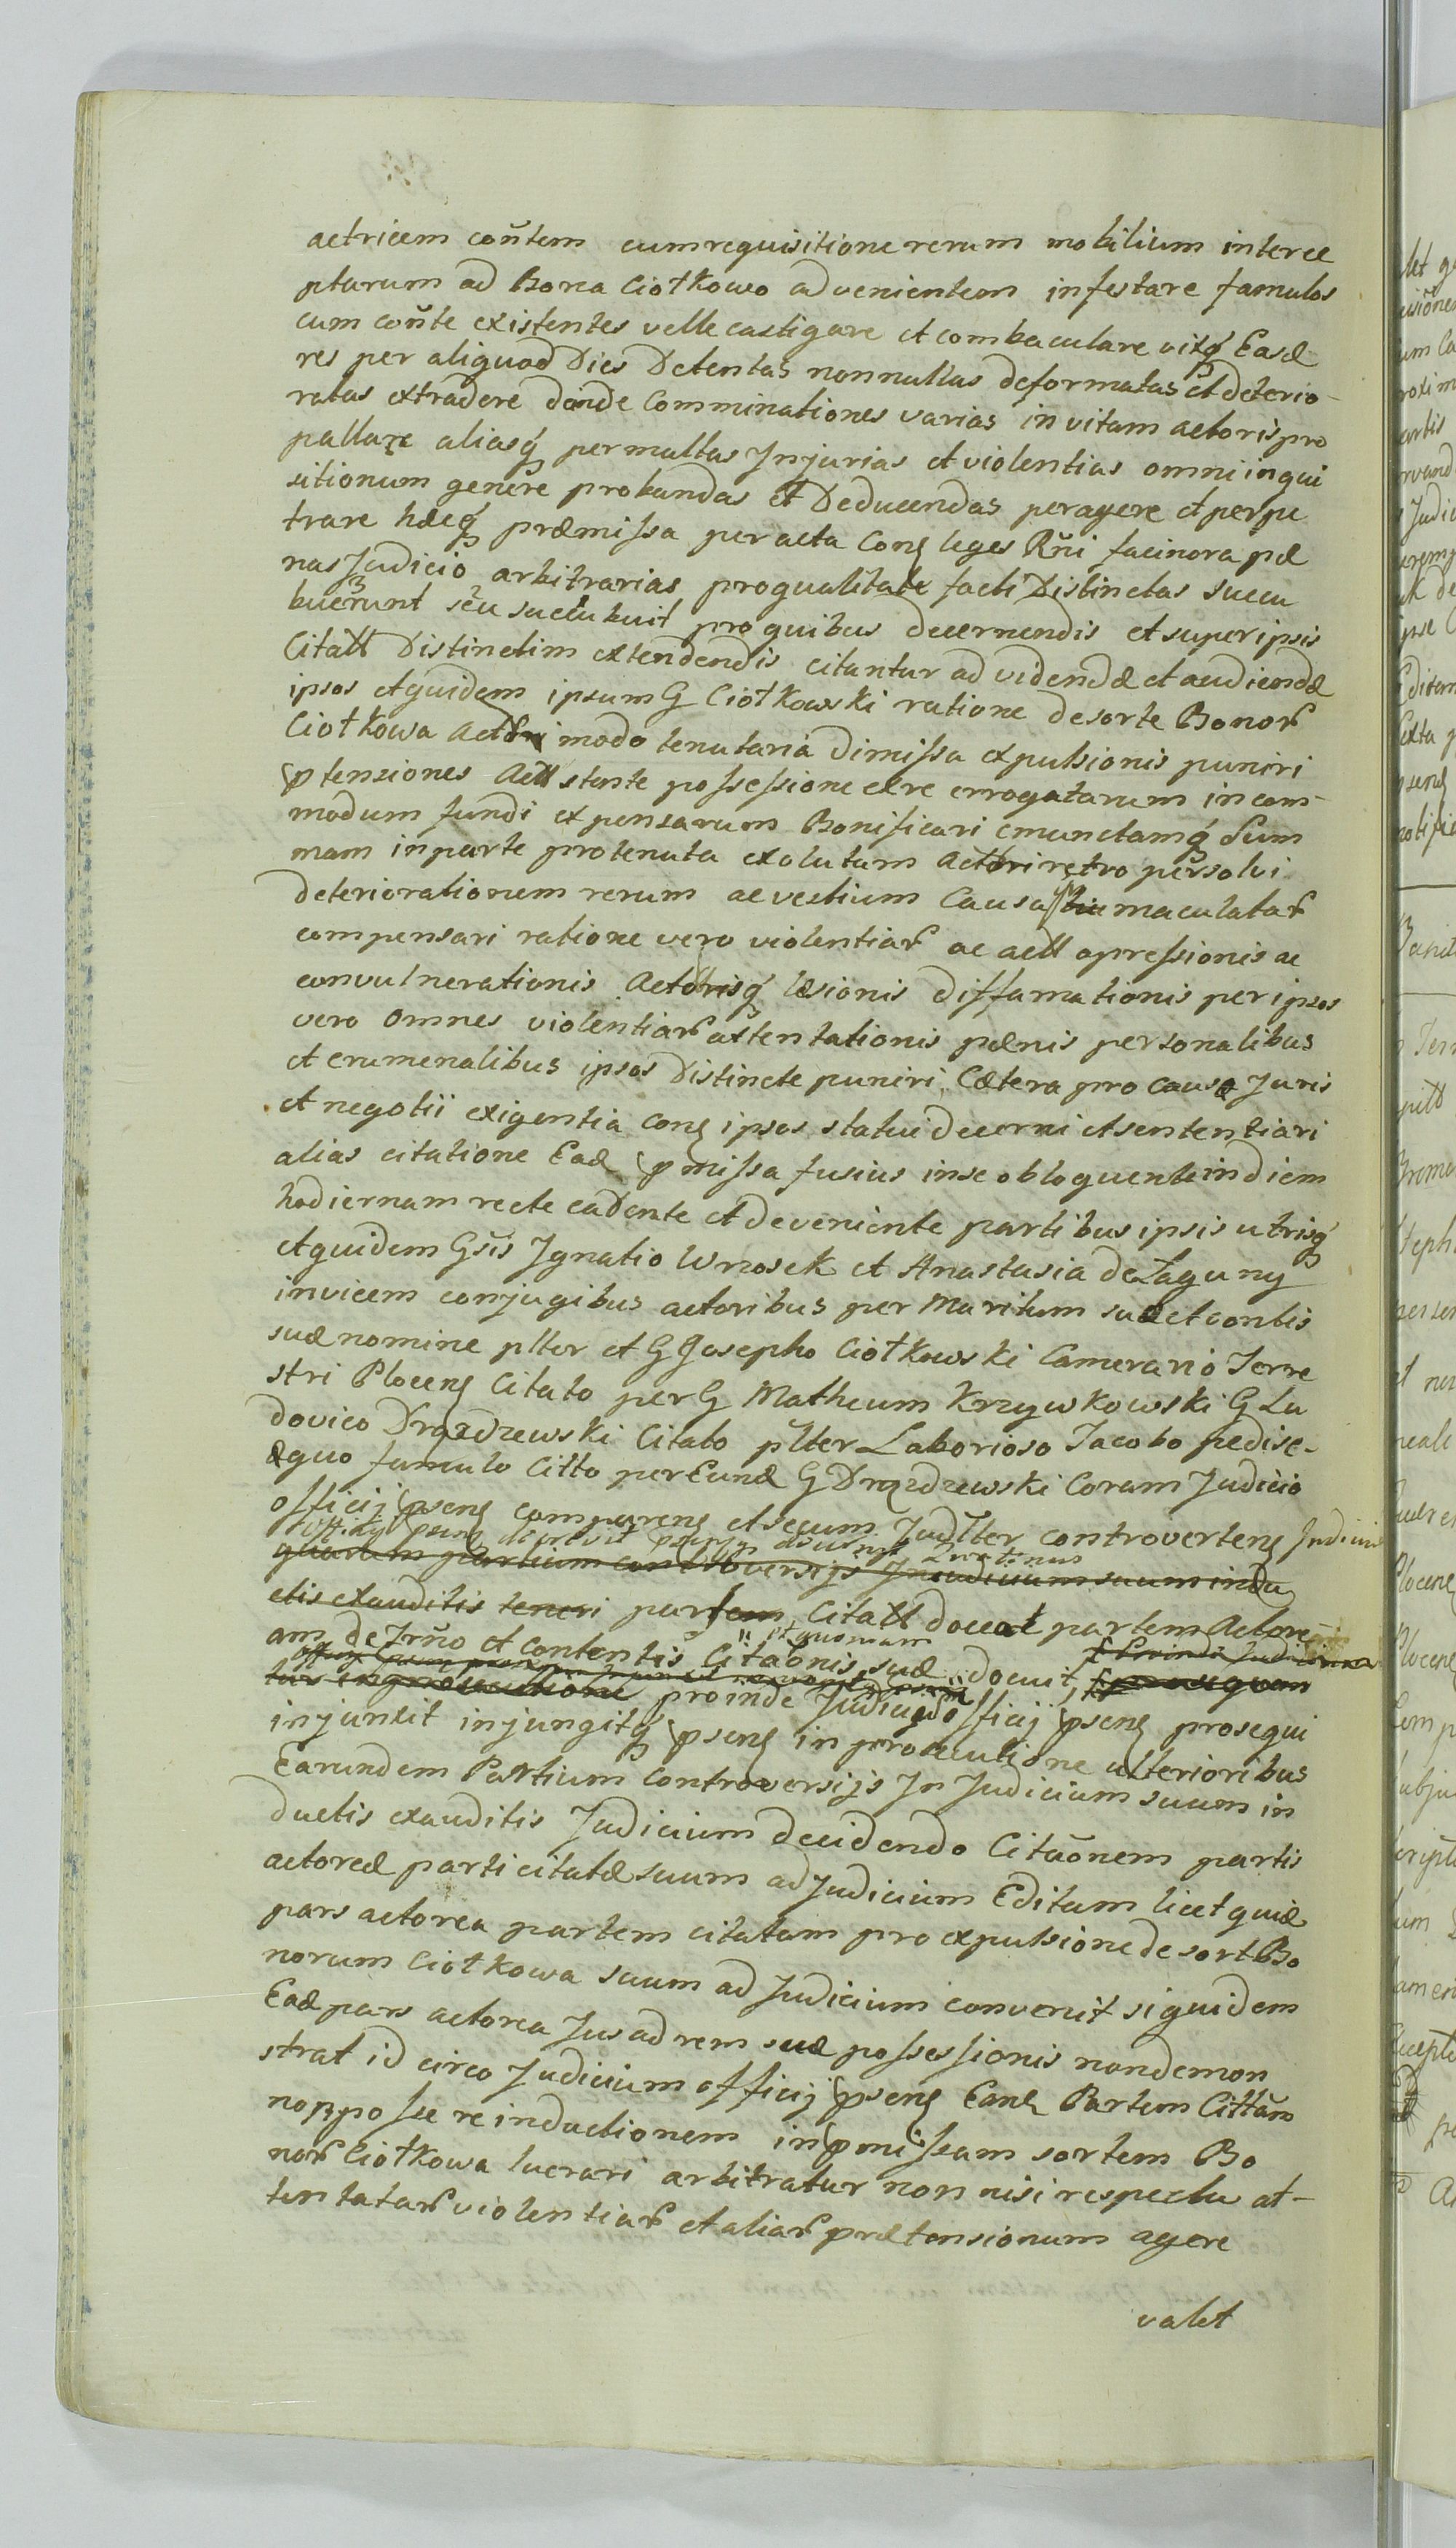 actricem coñtem cum requisitione rerum mobilium interce
ptarum ad Bona Ciołkowo advenientem infestare famulos
cum coñte existentes velle castigare et combaculare vixq́ Easd
res per aliquod Dies Detentas nonnullas deformatas et deterio-
ratas extradere deinde Comminationes varias in vitam actoris pro
pallare aliasq́ permultas Injurias et violentias omni inqui
sitionum genere probandas et Deducendas peragere et perpe
trare hæcq́ præmissa per acta Cong leges Rñi facinora pæ
nas Judicio arbitrarias pro qualitate facti Distinctas succu
buerunt seu succubuit pro quibus decernendis et super ipsis
Citatt Distinctim extendendis citantur ad videnda et audienda
ipsos et quidem ipsum G Ciołkowski ratione de sorte Bonor
Ciołkowa Actori modo tenutaria dimissa expulsionis puniri
ptensiones Actt stante possessione erogatarum in com-
modum fundi expensarum Bonificari emunctamq́ Sum
mam in parte pro tenuta exolutam Actori retro persolvi
deteriorationem rerum ac vestium Causa maculatar
compensari ratione vero violentiar ac actt opressionis ac
convulnerationis Actorisq́ læsionis diffamationis per ipsos
vero omnes violentiar attentationis pænis personalibus
et crumenalibus ipsos Distincte puniri, Cætera pro causæ Juris
et negotii exigentia cong ipsos statui decerni et sententiari
alias citatione Ead pmissa fusius in se obloquente in diem
hodiernam recte cadente et deveniente partibus ipsis utrisq́
et quidem Gsis Ignatio Wrzosek et Anastasia de Łaguny
invicem conjugibus actoribus per Maritum suæ et contis
suæ nomine plter et G Josepho Ciołkowski Camerario Terre
stri Ploceng Citato per G Matheum Krzywkowski G Lu
dovico Drozdzewski Citato plter Laborioso Jacobo pedise-
æquo famulo Citto per Eund G Drozdzewski Coram Judicio
officij pseng compareng et secum Judlter controverteng Judicium
officij pseng decrevit
quarum partium controversijs In Judicium suum indu
ctis exauditis teneri partem Citatt doceat partem Actore
am de Trño et contentis Citaõnis suæ et quoniam docuit
proinde Judicium officij pseng prosequi
injunxit injungitq́ pseng in prosecutione ulterioribus
Earundem Partium Controversijs In Judicium suum in
ductis exauditis Judicium decidendo Citaõnem partis
actoreæ parti citatæ suum ad Judicium Editam licet quid
pars actorea partem citatam pro expulsione de sort Bo
norum Ciołkowa suum ad Judicium convenit siquidem
Ead pars actorea Jus ad rem suæ possessionis non demon
strat id circo Judicium officij pseng Eand Partem Cittam
non posse reinductionem in pmissam sortem Bo
nor Ciołkowa lucrari arbitratur non nisi respectu at-
tentatar violentiar et aliar prætensionum agere
valet